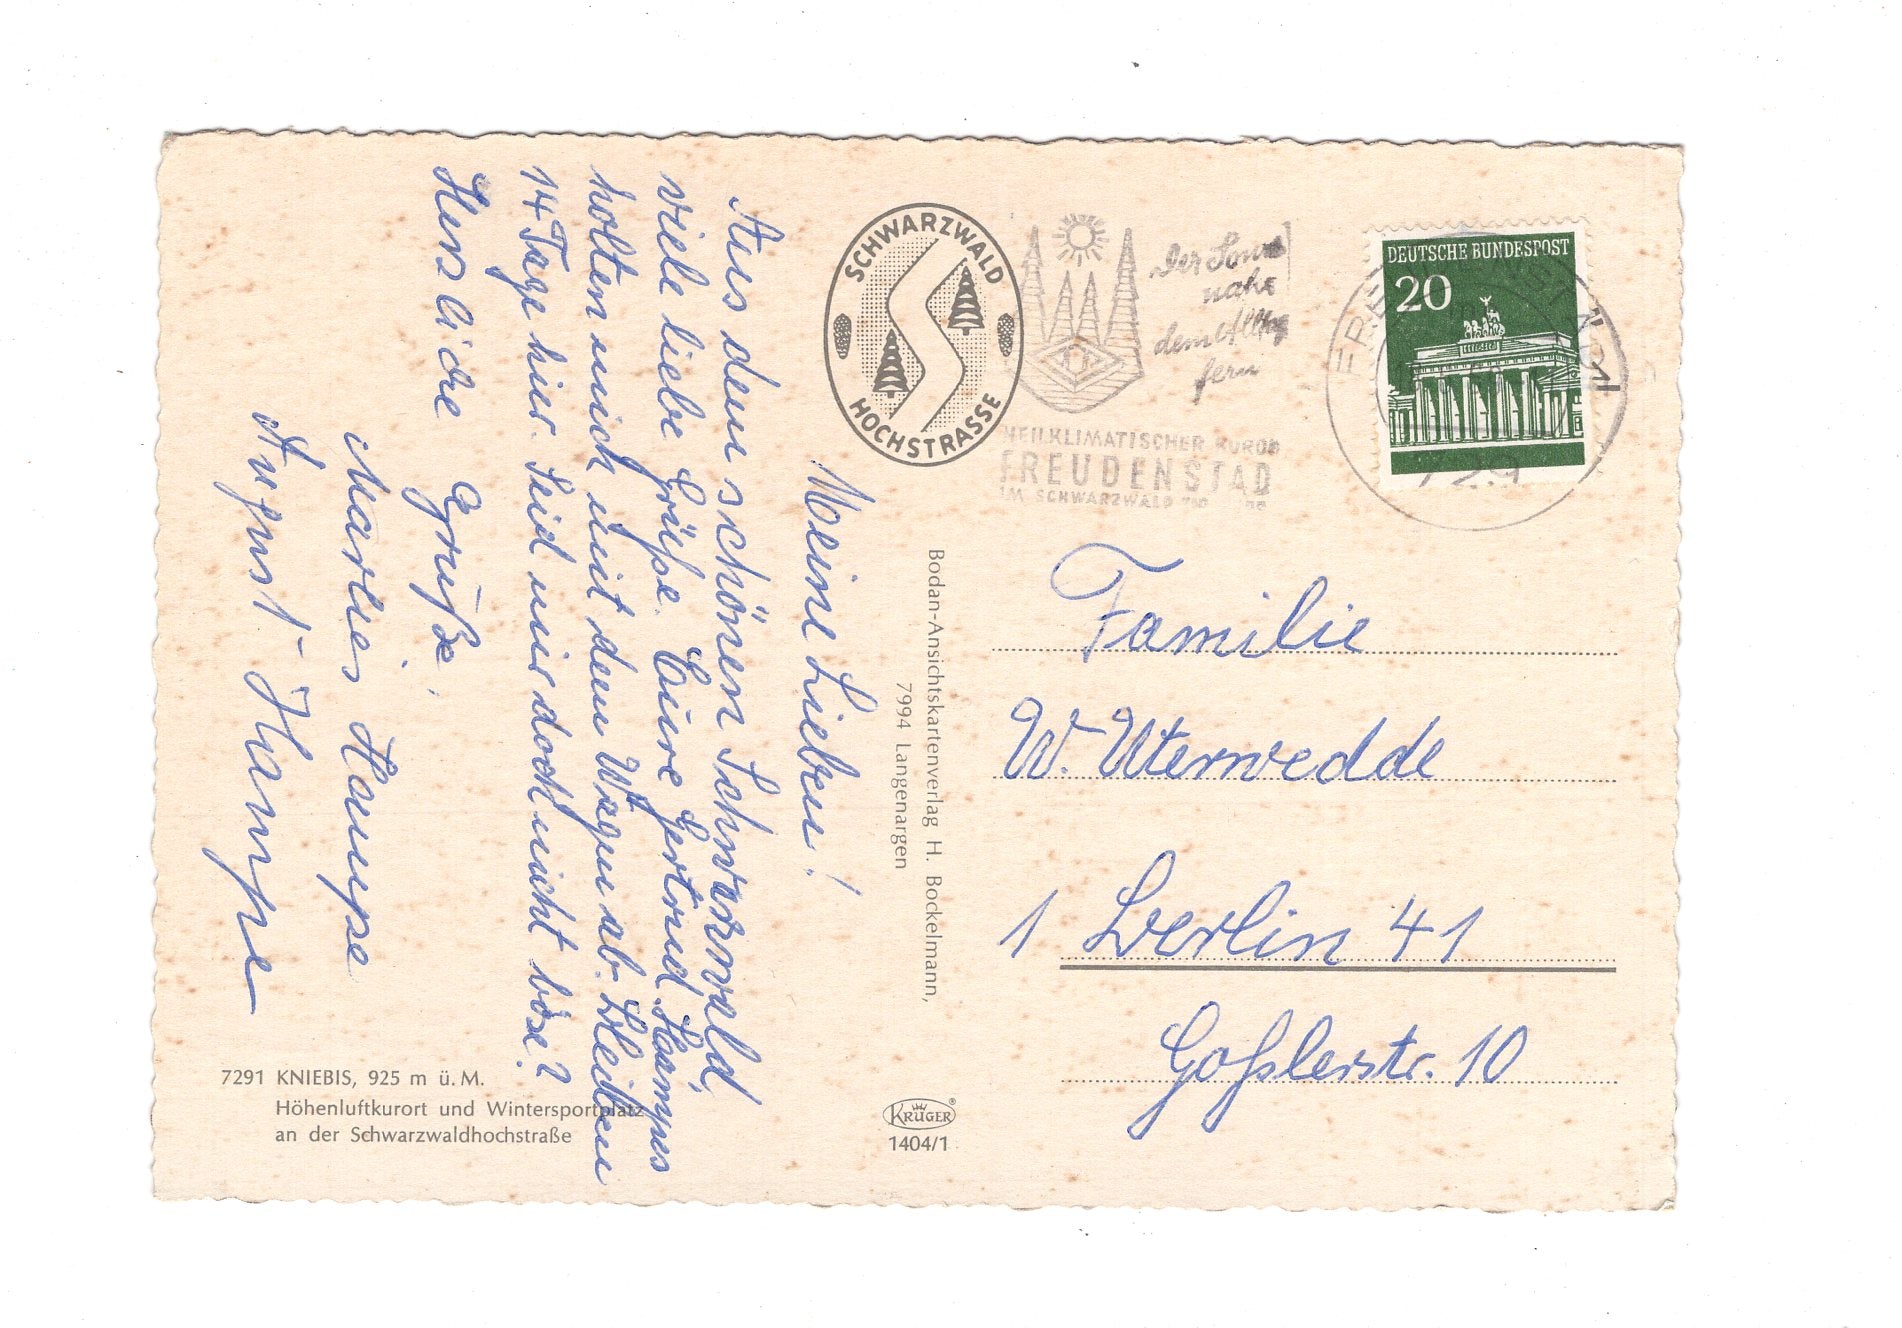 Meine Lieben!
Aus dem schönen Schwarzwald,
viele liebe Grüße. Eure Gertrud. Hampes
holten mich mit dem Wagen ab. Bleiben
14 Tage hier. Seid mir doch nicht böse?
Herzliche Grüße,
Marlies Hampe
August Hampe
7291 KNIEBIS, 925 m ü. M.
Höhenluftkurort und Wintersportplatz
an der Schwarzwaldhochstraße
SCHWARZWALD
HOCHSTRASSE
Bodan-Ansichtskartenverlag H. Bockelmann,
7994 Langenargen
KRÜGER®
1404/1
Der Sonne
nahe
dem Alltag
fern
HEILKLIMATISCHER KURORT
FREUDENSTADT
IM SCHWARZWALD
DEUTSCHE BUNDESPOST
20
729
Familie
W. Uterwedde
1 Berlin 41
Goßlerstr. 10